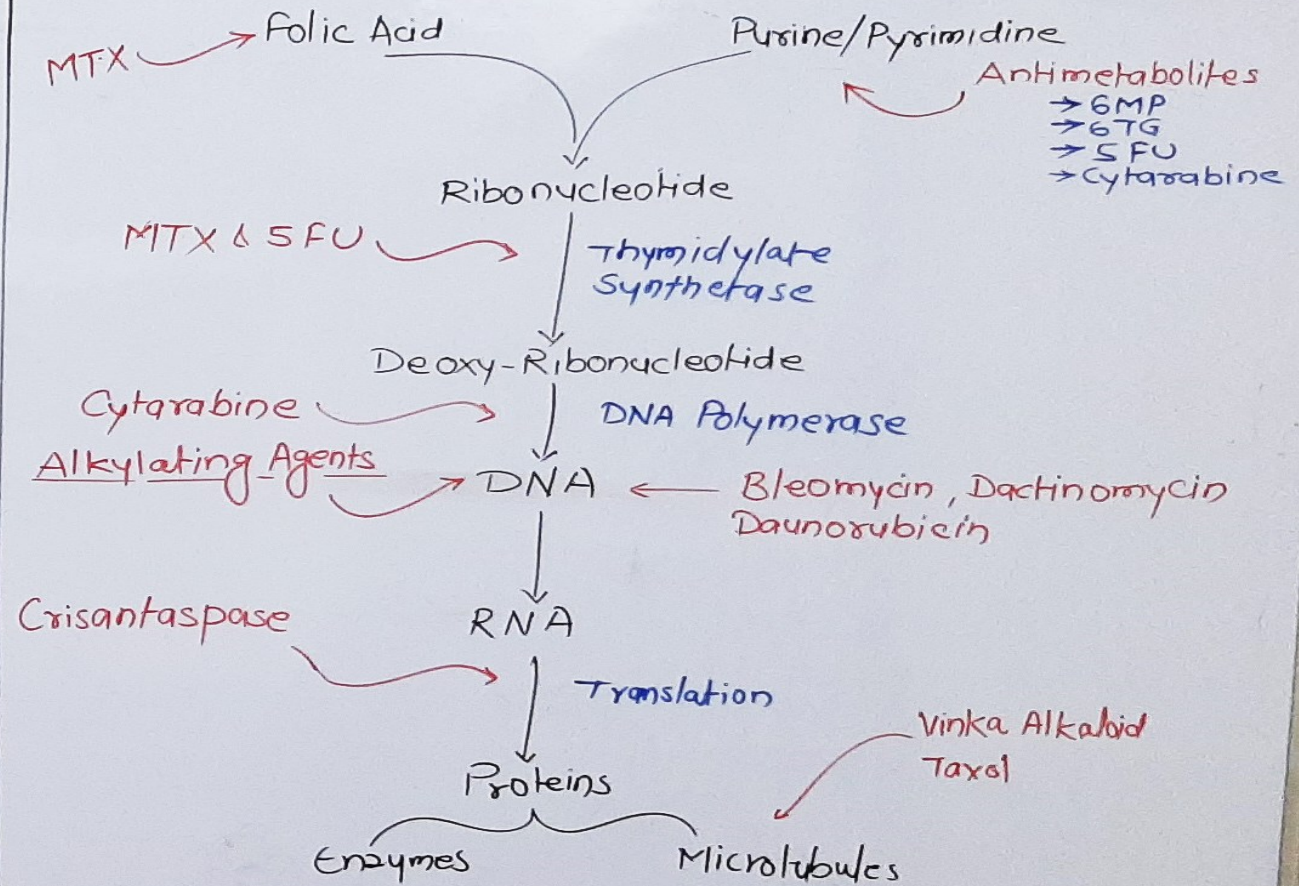 Folic Acid
Purine/Pyrimidine
MTX
Antimetabolites
→ 6MP
→ 6TG
→ 5 FU
→ Cytarabine
Ribonucleotide
MTX & 5 FU
Thymidylate
Synthetase
Deoxy-Ribonucleotide
Cytarabine
DNA Polymerase
Alkylating Agents
DNA
Bleomycin, Dactinomycin
Daunorubicin
Crisantaspase
RNA
Translation
Vinka Alkaloid
Taxol
Proteins
Enzymes
Microtubules